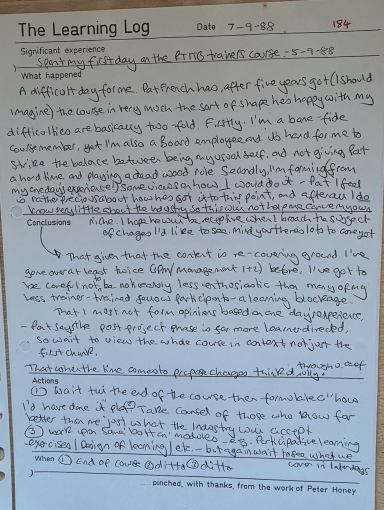 The Learning Log Date 7-9-88 184
Significant experience
Spent my first day on the PTITB trainers course - 5-9-88
What happened
A difficult day for me. Pat French has, after five years got (I should
imagine) the course in very much the sort of shape he's happy with my
difficulties are basically two-fold. Firstly. I'm a bone-fide
course member, yet I'm also a Board employee and it's hard for me to
strike the balance between being my usual self, and not giving Pat
a hard time and playing a dead wood role. Secondly, I'm forming (from
my one day experience!) some views on how I would do it - Pat I feel
is rather precious about how he's got it to this point, and after all I do
know very little about the industry so this will not help me carve my own
Conclusions niche. I hope he will be receptive when I broach the subject
of changes I'd like to see. Mind you there's lots to come yet
That given that the content is re-covering ground I've
gone over at least twice (IPM/management 1+2) before, I've got to
be careful not to be noticeably less enthusiastic than many of my
less trainer-trained fellow participants - a learning blockage.
That I must not form opinions based on one day's experience,
- Pat says the post project phase is far more learner directed,
so wait to view the whole course in context not just the
first chunk.
That when the time comes to propose changes think it through carefully.
Actions
① Wait till the end of the course then formulate "how
I'd have done it" plan ② Take counsel of those who know far
better than me just what the industry will accept
③ work upon some 'bolt on' modules - e.g. Participative learning
exercises / Design of learning / etc. - but again wait to see what we
cover in later days
When ① End of course ② ditto ③ ditto
...pinched, with thanks, from the work of Peter Honey